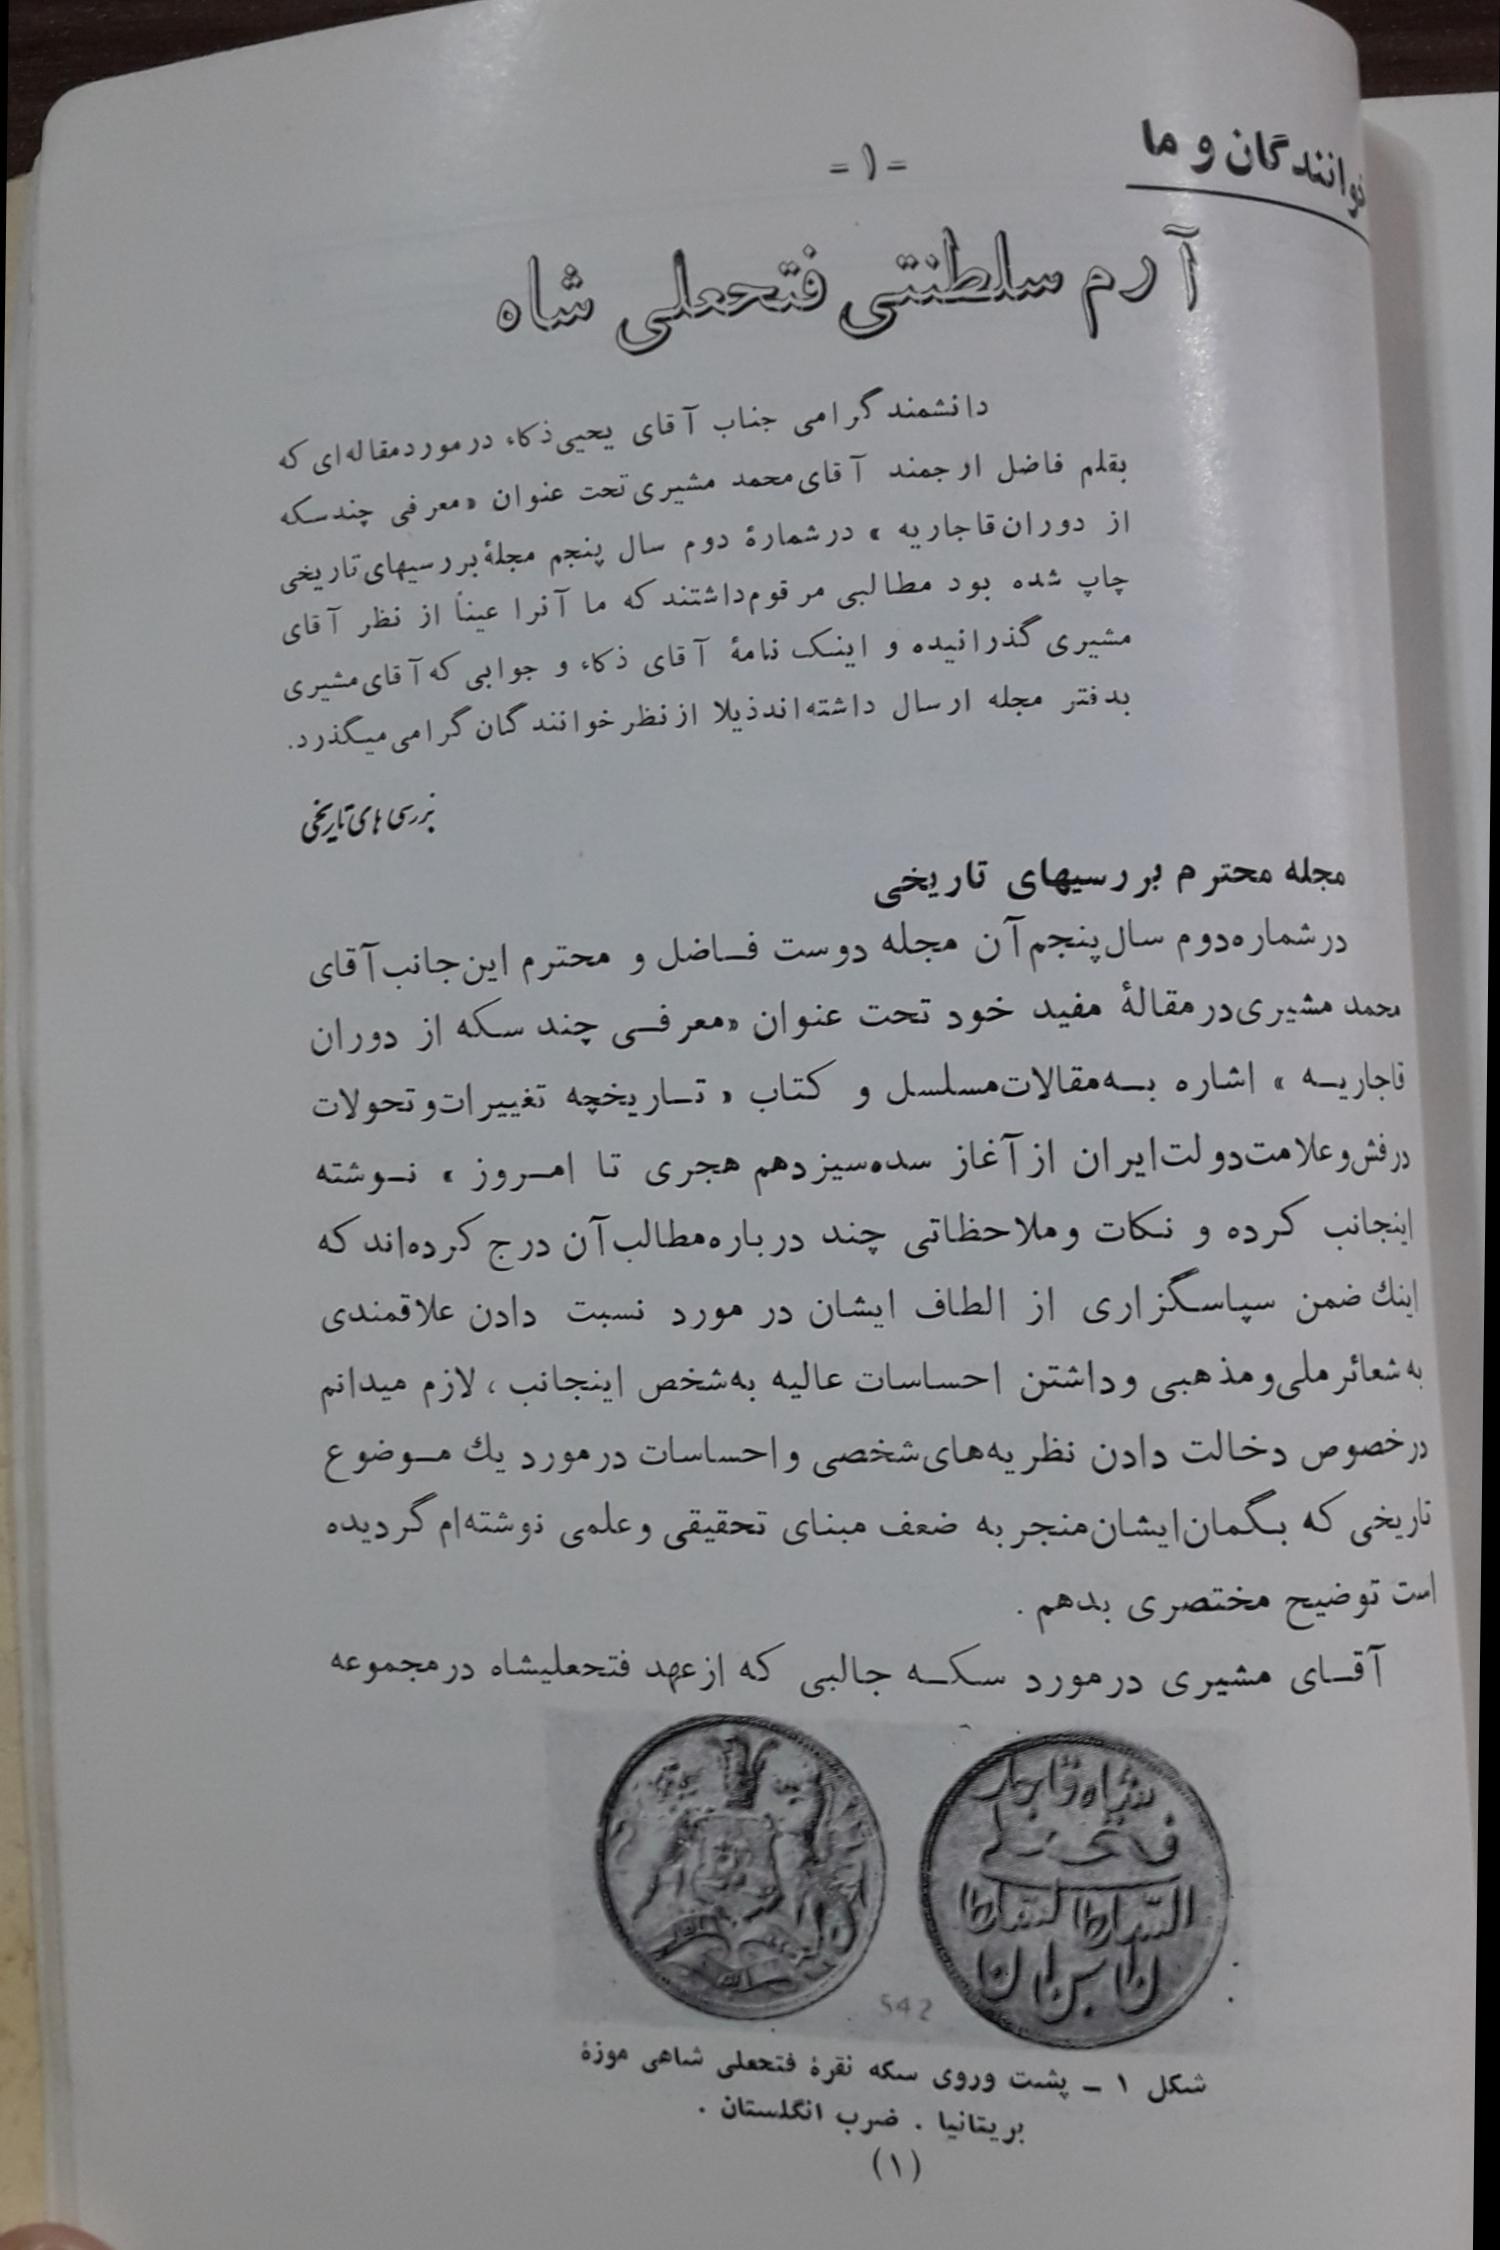 خوانندگان و ما
-۱-
آرم سلطنتی فتحعلی شاه
دانشمند گرامی جناب آقای یحیی ذکاء در مورد مقاله‌ای که
بقلم فاضل ارجمند آقای محمد مشیری تحت عنوان «معرفی چند سکه
از دوران قاجاریه» در شمارهٔ دوم سال پنجم مجلهٔ بررسیهای تاریخی
چاپ شده بود مطالبی مرقوم داشتند که ما آنرا عیناً از نظر آقای
مشیری گذرانیده و اینک نامهٔ آقای ذکاء و جوابی که آقای مشیری
بدفتر مجله ارسال داشته‌اند ذیلا از نظر خوانندگان گرامی میگذرد.
بررسی های تاریخی
مجله محترم بررسیهای تاریخی
در شماره دوم سال پنجم آن مجله دوست فاضل و محترم این جانب آقای
محمد مشیری در مقالهٔ مفید خود تحت عنوان «معرفی چند سکه از دوران
قاجاریه» اشاره به مقالات مسلسل و کتاب «تاریخچه تغییرات و تحولات
درفش و علامت دولت ایران از آغاز سده سیزدهم هجری تا امروز» نوشته
اینجانب کرده و نکات و ملاحظاتی چند درباره مطالب آن درج کرده‌اند که
اینك ضمن سپاسگزاری از الطاف ایشان در مورد نسبت دادن علاقمندی
به شعائر ملی و مذهبی و داشتن احساسات عالیه به شخص اینجانب ، لازم میدانم
در خصوص دخالت دادن نظریه‌های شخصی و احساسات در مورد یك موضوع
تاریخی که بگمان ایشان منجر به ضعف مبنای تحقیقی و علمی نوشته‌ام گردیده
است توضیح مختصری بدهم .
آقای مشیری در مورد سکه جالبی که از عهد فتحعلیشاه در مجموعه
شاه قاجار
فتحعلی
السلطا السلطا
ن ابن ن
542
شکل ۱ ـ پشت وروی سکه نقرهٔ فتحعلی شاهی موزهٔ
بریتانیا . ضرب انگلستان .
(۱)